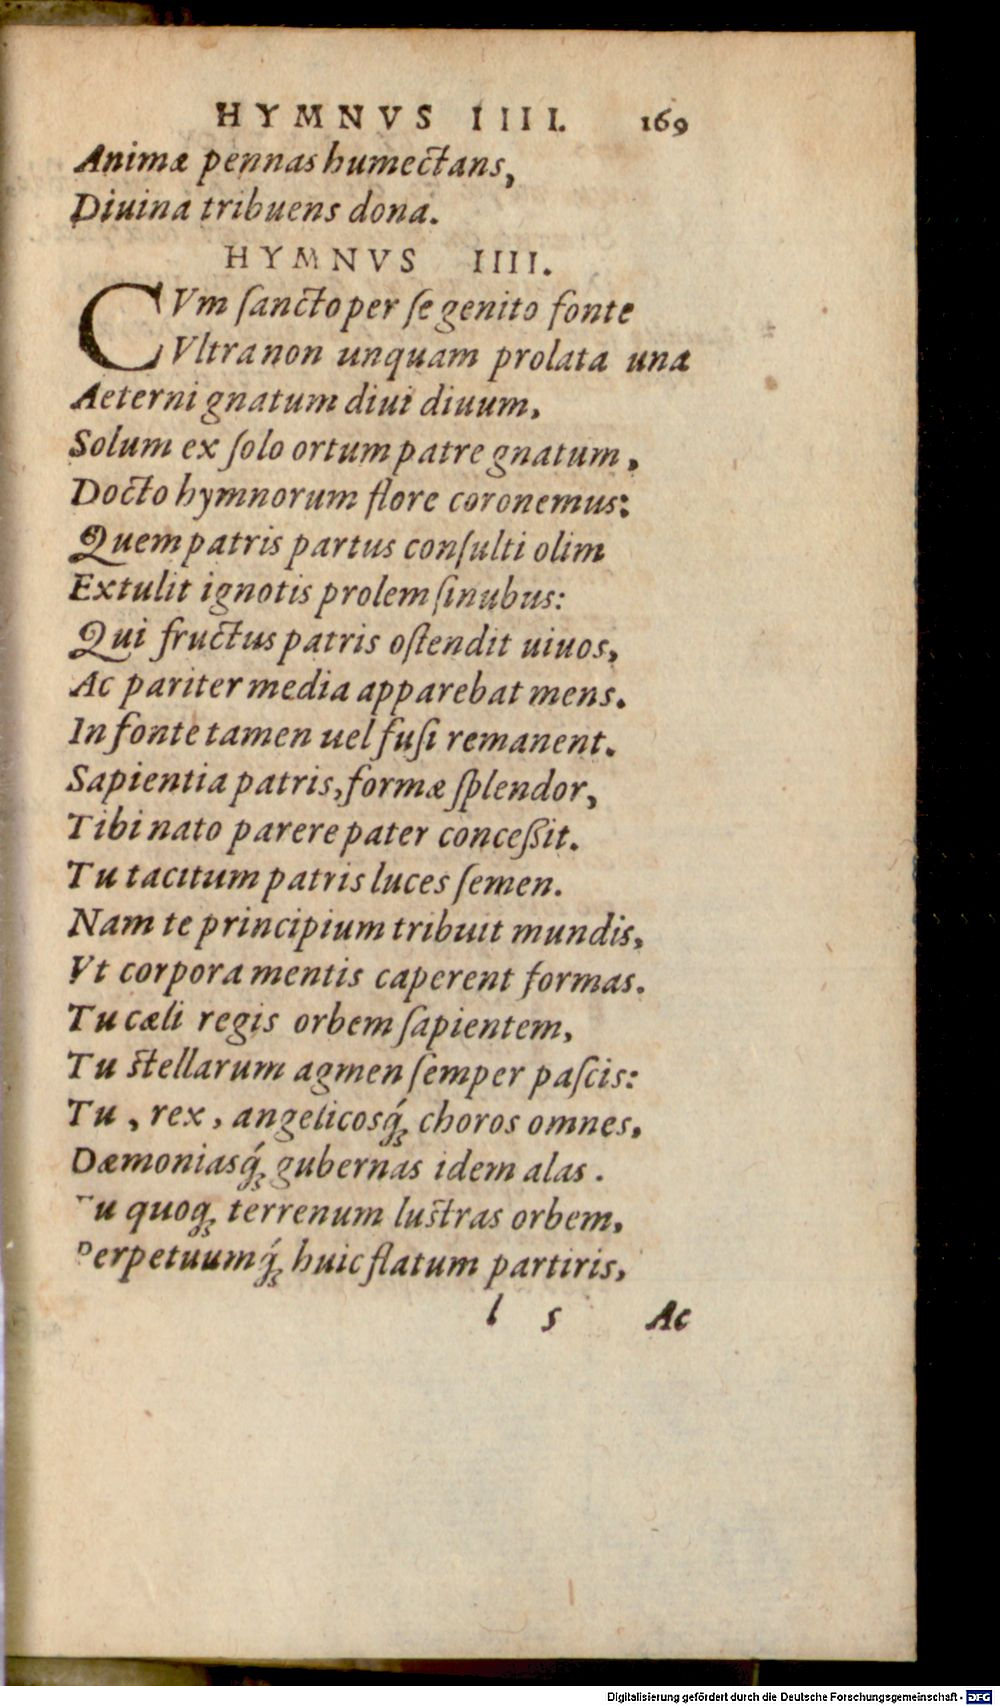 HYMNVS IIII. 169
Animæ pennas humectans,
Diuina tribuens dona.
HYMNVS IIII.
CVm ſancto per ſe genito fonte
Vltra non unquam prolata una
Aeterni gnatum diui diuum,
Solum ex ſolo ortum patre gnatum,
Docto hymnorum flore coronemus:
Quem patris partus conſulti olim
Extulit ignotis prolem ſinubus:
Qui fructus patris oſtendit uiuos,
Ac pariter media apparebat mens.
In fonte tamen uel fuſi remanent.
Sapientia patris, formæ ſplendor,
Tibi nato parere pater conceßit.
Tu tacitum patris luces ſemen.
Nam te principium tribuit mundis,
Vt corpora mentis caperent formas.
Tu cæli regis orbem ſapientem,
Tu ſtellarum agmen ſemper paſcis:
Tu, rex, angelicosq́; choros omnes,
Dæmoniasq́; gubernas idem alas.
Tu quoq; terrenum luſtras orbem,
Perpetuumq́; huic flatum partiris,
l 5 Ac
Digitalisierung gefördert durch die Deutsche Forschungsgemeinschaft - DFG